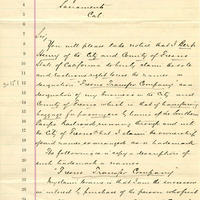 Sacramento
Cal
Sir,
You will please take notice that I Bert
of the City and County of Fresno
State of California do hereby claim the sole
and exclusive right to use the name or
designation "Fresno Transfer Company" as a
designation of my business in the City and
County of Fresno which is that of transferring
baggage for passengers by trains of the Southern
Pacific Railroad, running through and out
the City of Fresno that I claim the ownership
said name as aranged as a trademark
The following is a copy & description of
such trademark or names
Fresno Transfer Company
My claim thereto is that I am the successor
in interest by purchase of the person who first